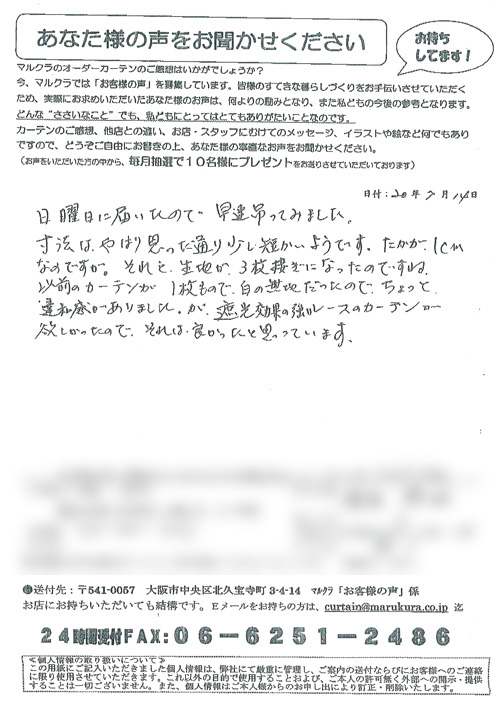 あなた様の声をお聞かせください
お待ち
してます!
マルクラのオーダーカーテンのご感想はいかがでしょうか?
今、マルクラでは「お客様の声」を募集しています。皆様のすてきな暮らしづくりをお手伝いさせていただく
ため、実際にお求めいただいたあなた様のお声は、何よりの励みとなり、また私どもの今後の参考となります。
どんな“ささいなこと”でも、私どもにとってはとてもありがたいことなのです。
カーテンのご感想、他店との違い、お店・スタッフにむけてのメッセージ、イラストや絵など何でもあり
ですので、どうぞご自由にお書きの上、あなた様の率直なお声をお聞かせください。
(お声をいただいた方の中から、毎月抽選で10名様にプレゼントをお送りさせていただいております)
日付:20年7月14日
日曜日に届いたので早速吊ってみました。
寸法はやはり思った通り少し短かいようです。たかが1cm
なのですが。それと、生地が3枚接ぎになったのですね。
以前のカーテンが1枚もので、白の無地だったので、ちょっと
違和感がありました。が、遮光効果の強いレースのカーテンが
欲しかったので、それは良かったと思っています。
●送付先:〒541-0057 大阪市中央区北久宝寺町3-4-14 マルクラ「お客様の声」係
お店にお持ちいただいても結構です。Eメールをお持ちの方は、curtain@marukura.co.jp 迄
24時間受付FAX:06-6251-2486
<個人情報の取り扱いについて>
この用紙にご記入いただきました個人情報は、弊社にて厳重に管理し、ご案内の送付ならびにお客様へのご連絡
に限り使用させていただきます。これ以外の目的で使用することおよび、ご本人の許可無く外部への開示・提供
することは一切ございません。また、個人情報はご本人様からのお申し出により訂正・削除いたします。